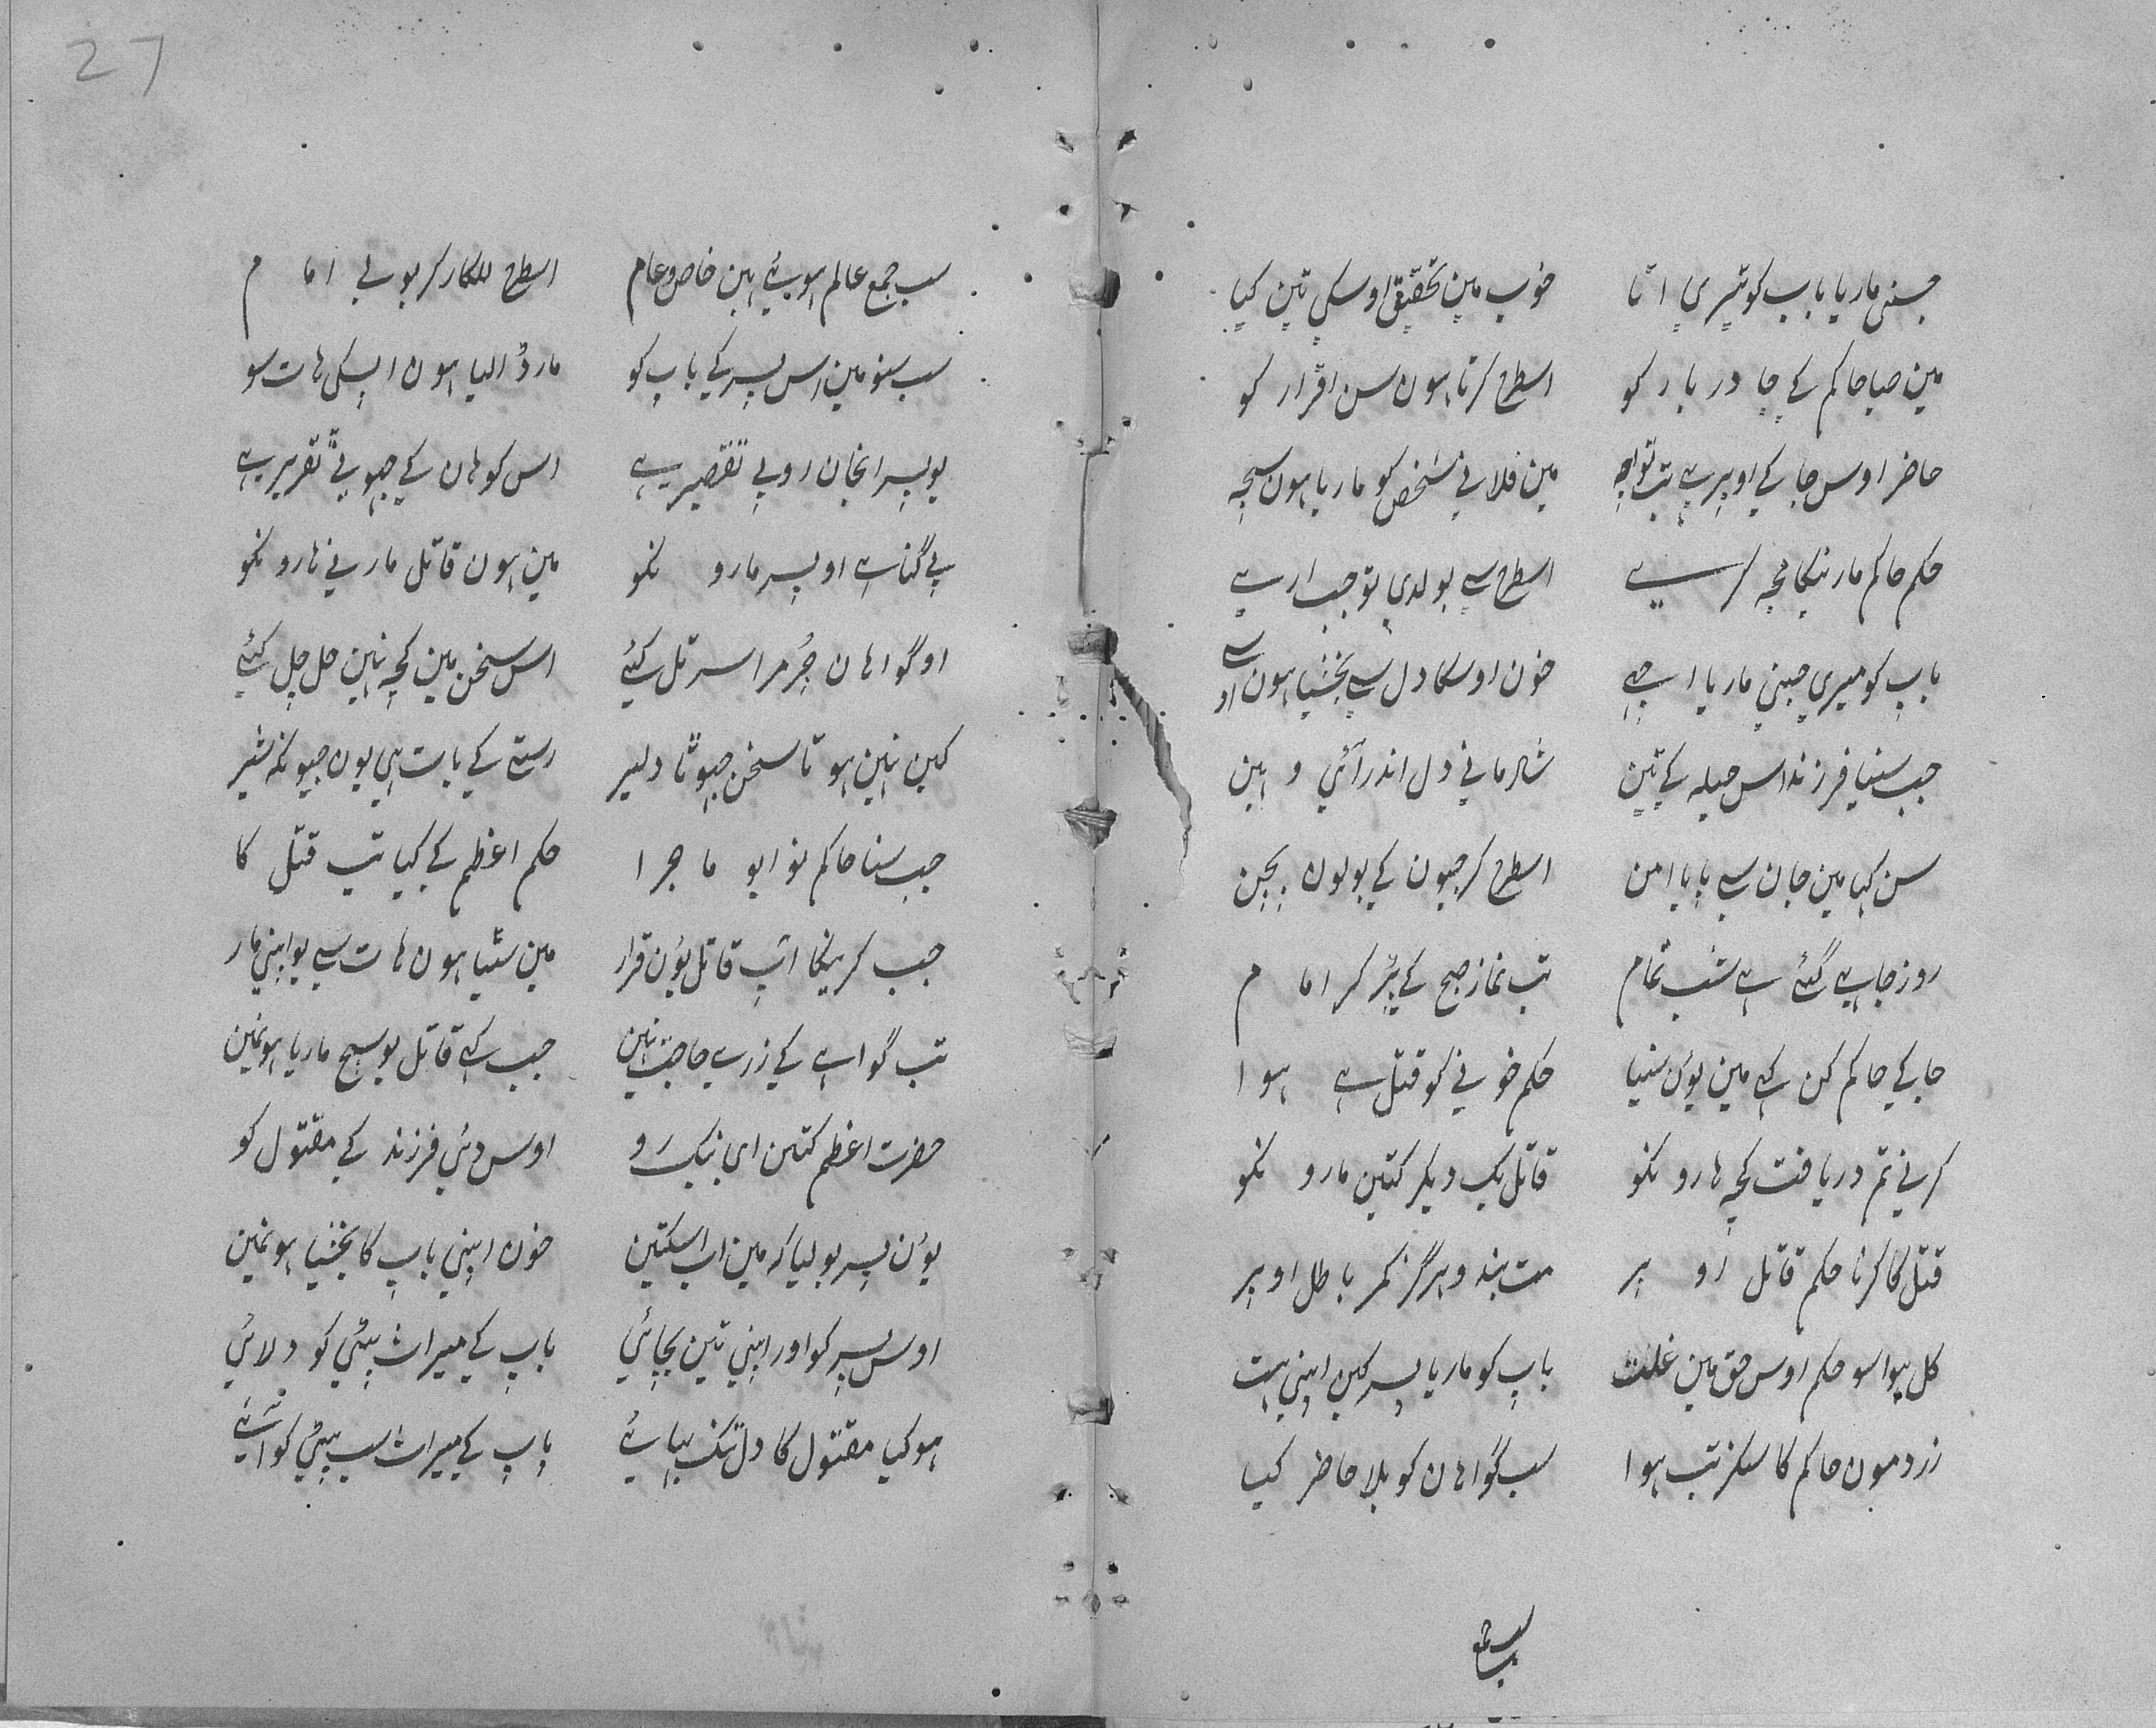 جسنی ماریا باپ کو تیری اتا خوب مین تحقیق اوسکی تین کیا
مین صبا حاکم کے جا دربار کو اسطرح کرتا ہون سن اقرار کو
حاضر اوس جا کے اوپر ہے تب تو اچہ مین فلانی شخص کو ماریا ہون سچہ
حکم حاکم مارنیکا مجہ کرسے اسطرح سے بولدی تو جب ارے
باپ کو میری جبنی ماریا اچہے خون اوسکا دل سے بخشیا ہون او سے
جب سنیا فرزند اس حیلہ کے تین شادمانی دل اندر آئی وہین
سن کہیا مین جان سے بابا امن اسطرح کر جیون کے بولون بچن
روز جا ہے گئے ہے شب تمام تب نماز صبح کے پڑکر امام
جا کے حاکم کن کہے مین یوں سنیا حکم خونی کو قتل ہے ہوا
کرنے تم دریافت کچہ ہارو نکو قاتل یک دیگر کتین مارو نکو
قتل کا کرنا حکم قاتل اوپر مت بندو ہرگز کمر باطل اوپر
کل ہوا سو حکم اوس حق مین غلت باپ کو ماریا پسر کہین اپنی ہت
زرد مون حاکم کا سنکر تب ہوا سب گواہان کو بلا حاضر کیا
سب جمع
27
سب جمع عالم ہوئے ہین خاص و عام اسطرح للکار کر بولے امام
سب سنو مین اس پسر کے باپ کو مار ڈالیا ہون اپسکی ہات سو
یو پسر انجان او بے تقصیر ہے اس گواہان کے جہوٹی تقریر ہے
بے گناہ ہے او پسر مارو نکو مین ہون قاتل مارنے ہارو نکو
او گواہان جُرمرا سر تل کئے اس سخن مین کچہ نہین حل چل کئے
کہین نہین ہوتا سخن جہوٹا دلیر رستے کے بات ہی یون جیونکہ شیر
جب سنا حاکم نو ایو ماجرا حکم اعظم کے کیا تب قتل کا
جب کریگا اپ قاتل یوں قرار مین سٹیا ہون ہات سے یو اپنی مار
تب گواہے کے ذرے حاجت نہین جب کہے قاتل یو سچ ماریا ہونمین
حضرت اعظم کتین ای نیک رو اوس دئی فرزند کے مقتول کو
یوں پسر بولیا کہ مین اب اسکتین خون اپنی باپ کا بخشیا ہونمین
اوس پسر کو اور اپنی تین بچائی باپ کے میراث بیٹی کو دلائی
ہو کیا مقتول کا دل تک بیا ئے باپ کے میراث سب بیٹی کو آئے